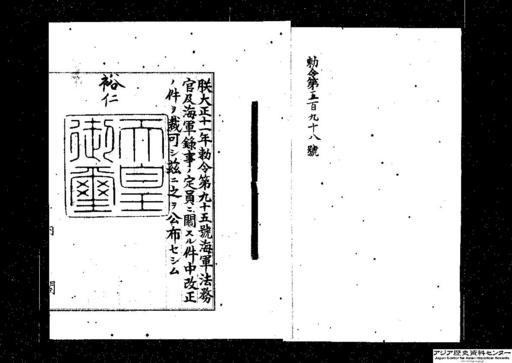 勅令第五百九十八號
朕大正十一年勅令第九十五號海軍法務
官及海軍錄事ノ定員ニ關スル件中改正
ノ件ヲ裁可シ茲ニ之ヲ公布セシム
裕仁
天皇
御璽
内
閣
アジア歴史資料センター
Japan Center for Asian Historical Records